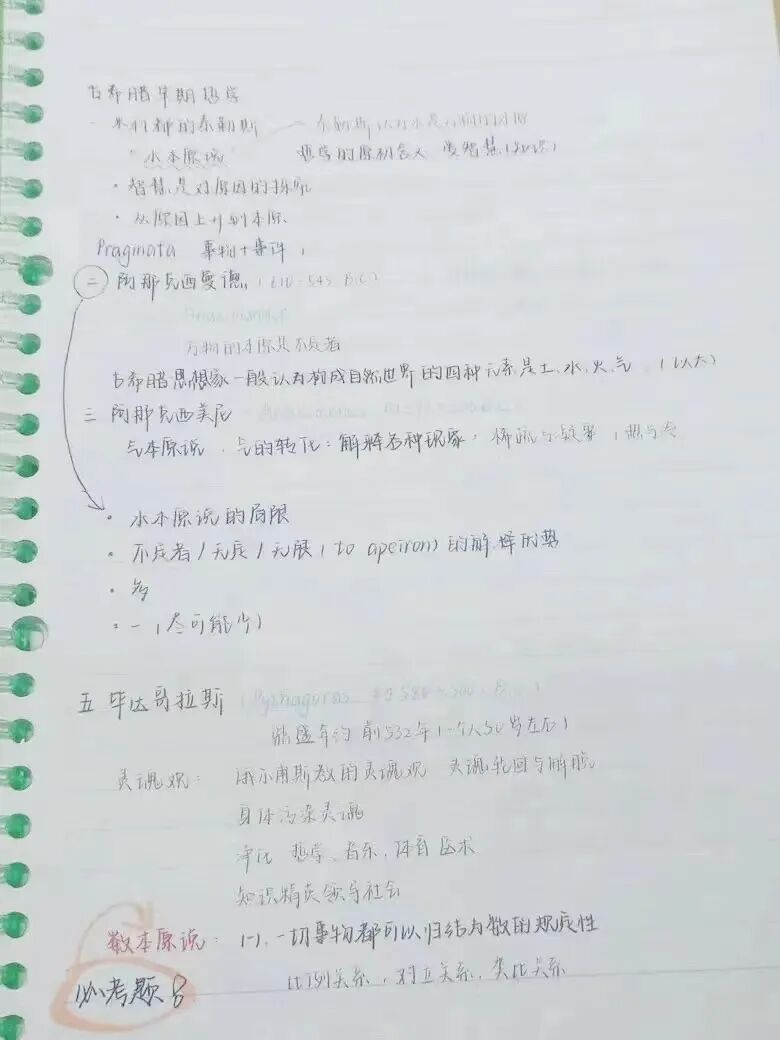 古希腊早期哲学
一 米利都的泰勒斯 泰勒斯认为水是万物的本原
"水本原说" 哲学的原初含义 爱智慧(知识)
· 智慧是对原因的探究
· 从原因上升到本原
Pragmata 事物+事件
二 阿那克西曼德 (610-545 B.C)
Anaximander
万物的本原是不定者
古希腊思想家一般认为构成自然世界的四种元素是土、水、火、气 (以太)
三 阿那克西美尼
气本原说 气的转化:解释各种现象, 稀疏与凝聚,热与冷
· 水本原说的局限
· 不定者/无定/无限(to apeiron)的解释
· 多
· 一(尽可能少)
五 毕达哥拉斯 (Pythagoras 约580-500, B.C)
鼎盛年约前532年(一个人50岁左右)
灵魂观: 俄尔甫斯教的灵魂观 灵魂轮回与解脱
身体污染灵魂
净化 哲学、音乐、体育 医术
知识精英领导社会
数本原说: (一)、一切事物都可以归结为数的规定性
比例关系,对立关系,类比关系
必考题8